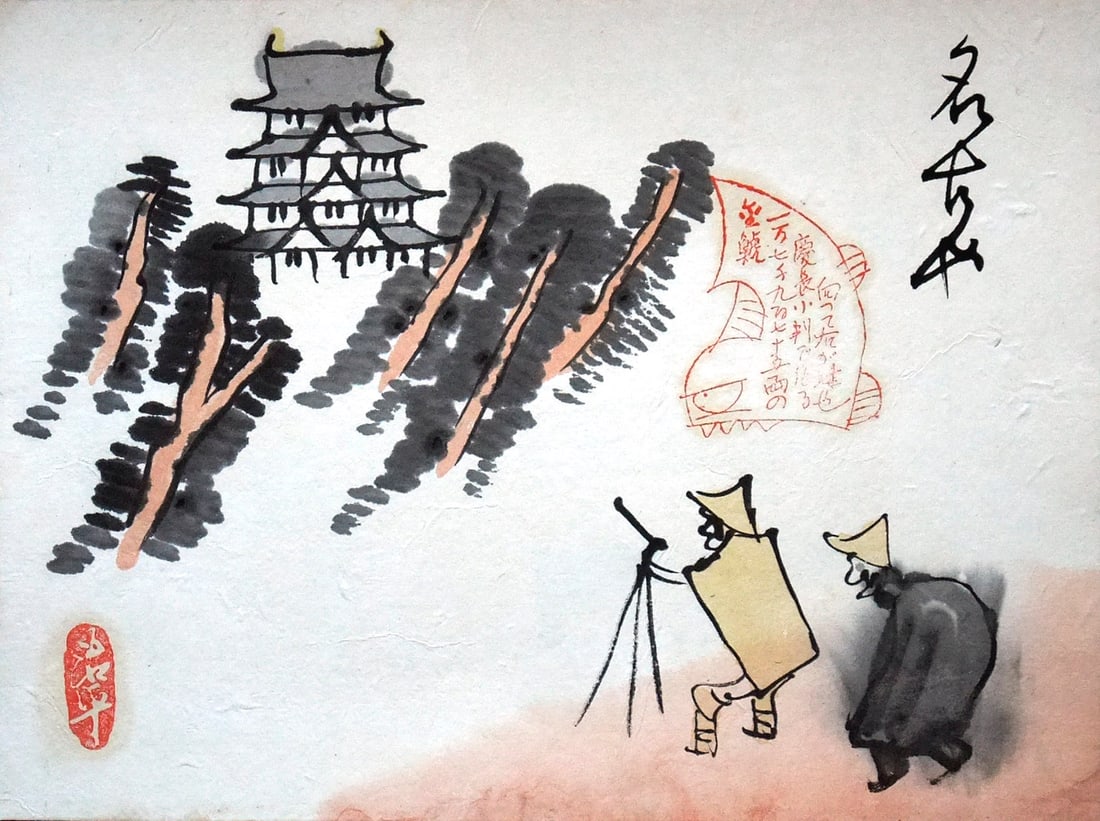 名古や
金鯱
一万七千九百七十五両の
慶長小判で作る
向つて右が雄也